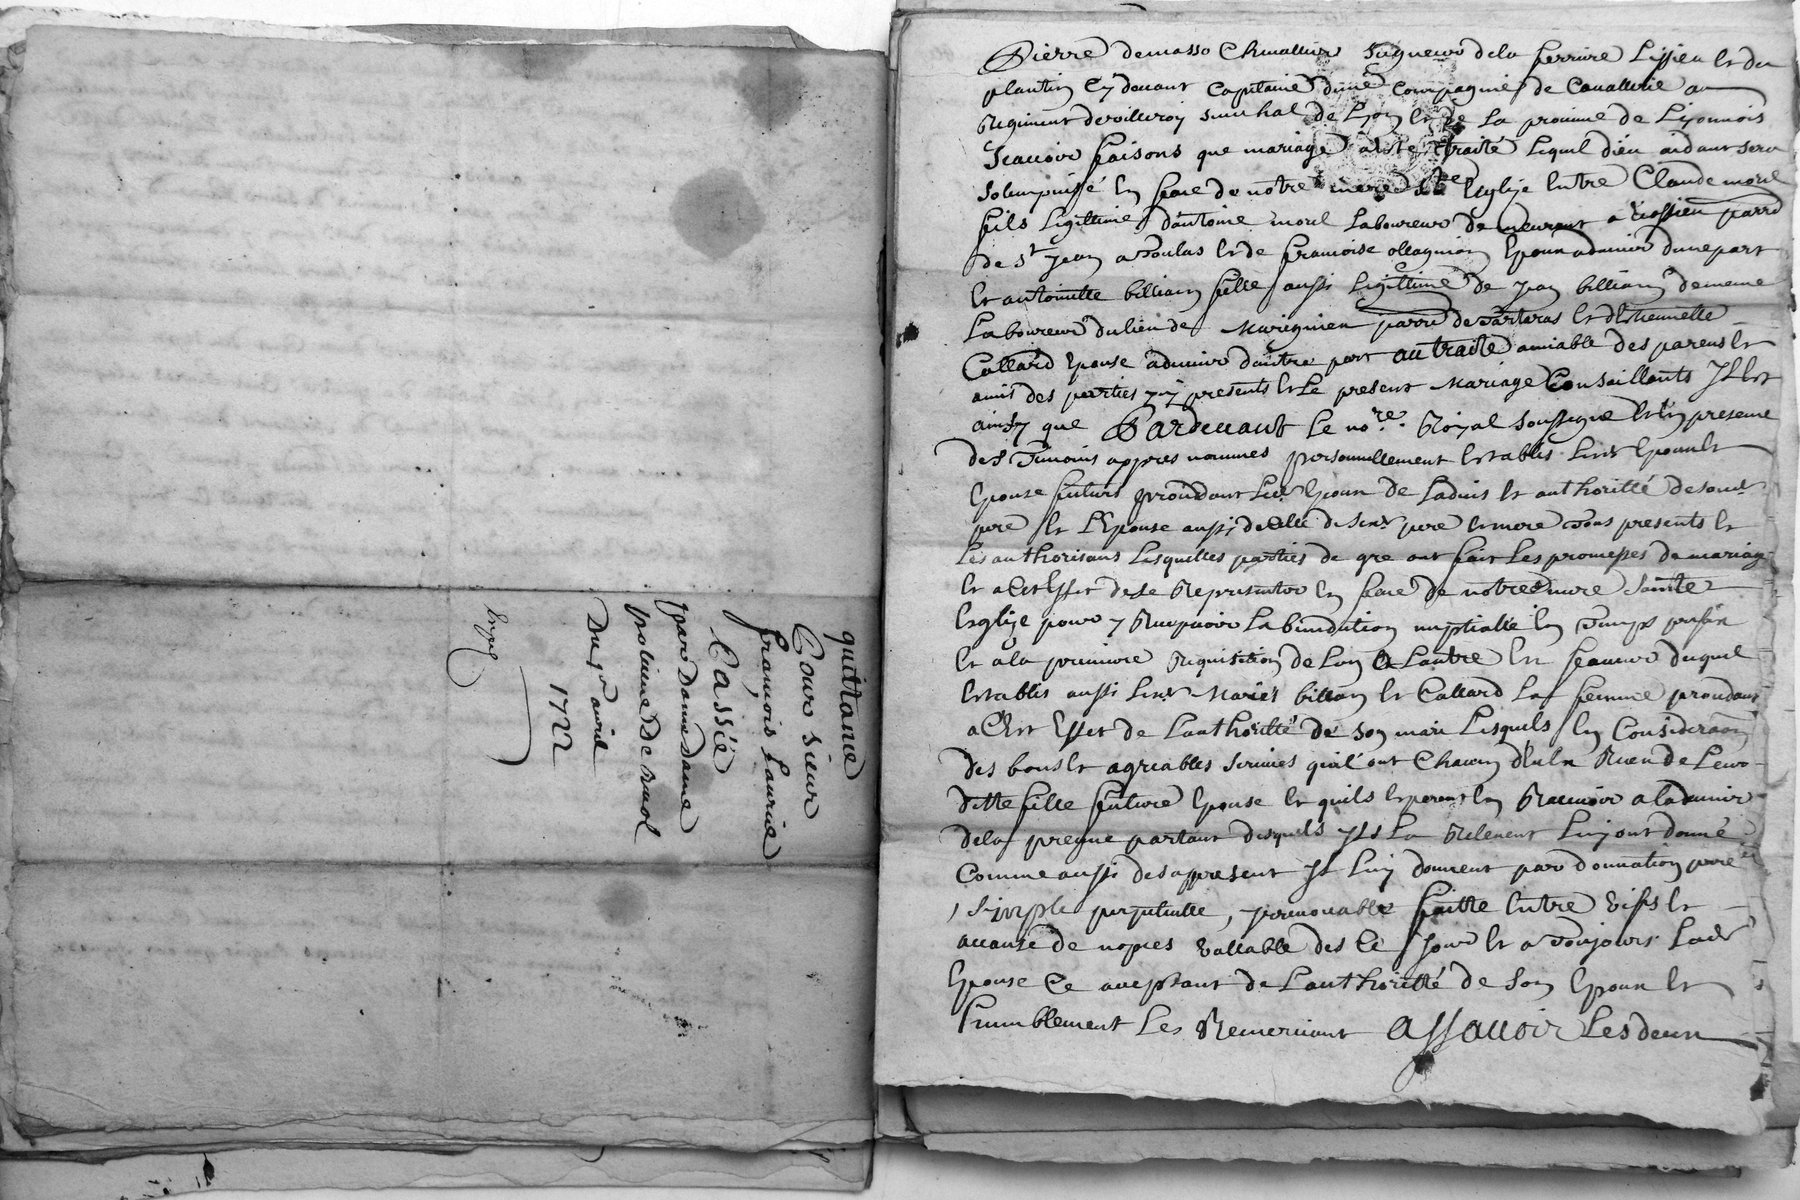 quittance
Pour sieur
francois Laurie
Cassie
par Donne Dame
polaine De
Du 1er avril
1722
Pierre demasso Chevallier Seigneur dela ferriere Lissieu et du
plantin Cy davant Capitaine dune Compagnie de Cavallerie au
Regiment devilleroy seneschal de Lyon et de la province de Liyonnois
Scavoir faisons que mariage a este traité lequel dieu aidant sera
Solempnisé en face de notre mere Ste Eglize Entre Claude morel
fils Legittime d'antoine morel Laboureur demeurant a parre
de St Jean a Toulas et de francoise ollagnier Epoux advenir dune part
Et antoinette billiany fille aussi Legittime de Jean billiany dememe
Laboureur du lieu de parre de Tartaras et d'Estiennette
Collard Epouse advenir dautre part au traité amiable des parens et
amis des parties y presents et Le present Mariage Consaillants Il Est
ainsy que Pardevant Le nore. Royal soussigné Et en presence
des Temoins appres nommes personnellement Establis Lesdt Epoux et
Epouze futurs procedant Ledt Epoux de Ladvis et authoritté desondt
pere et L'Epouse aussy de celle de sesdt pere et mere Tous presents et
Les authorisans Lesquelles parties de gre ont fait Les promesses de mariage
Et a Cet Effet de se Representer en face de notre mere Sainte
Esglize pour y Recepvoir La benediction nuptialle en Temps
Et a la premiere Requisition de Lun de Lautre Et faveur duquel
Establis aussi Lesdt Mariés billiany et Collard La femme procedant
a C'Est Effet de Lauthoritté de son mari Lesquels En Consideraon
des bons et agreables services quil ont Chacun d'Eulx Receu de Leur
ditte fille future Epouse et quils Esperent En Recevoir a ladvenir
dela preuve partant desquels Ils La Relevent Luy ont donné
Comme aussi desappresent Il Luy donnent par donnation pure
Simple perpetuelle, yrrevocable faitte Entre vifs Et
a cause de nopces vallable des Ce Jour Et a Toujours Ladt
Epouse Ce acceptant de Lauthoritté de son Epoux Et
humblement Les Remerciant assavoir Lesdeux